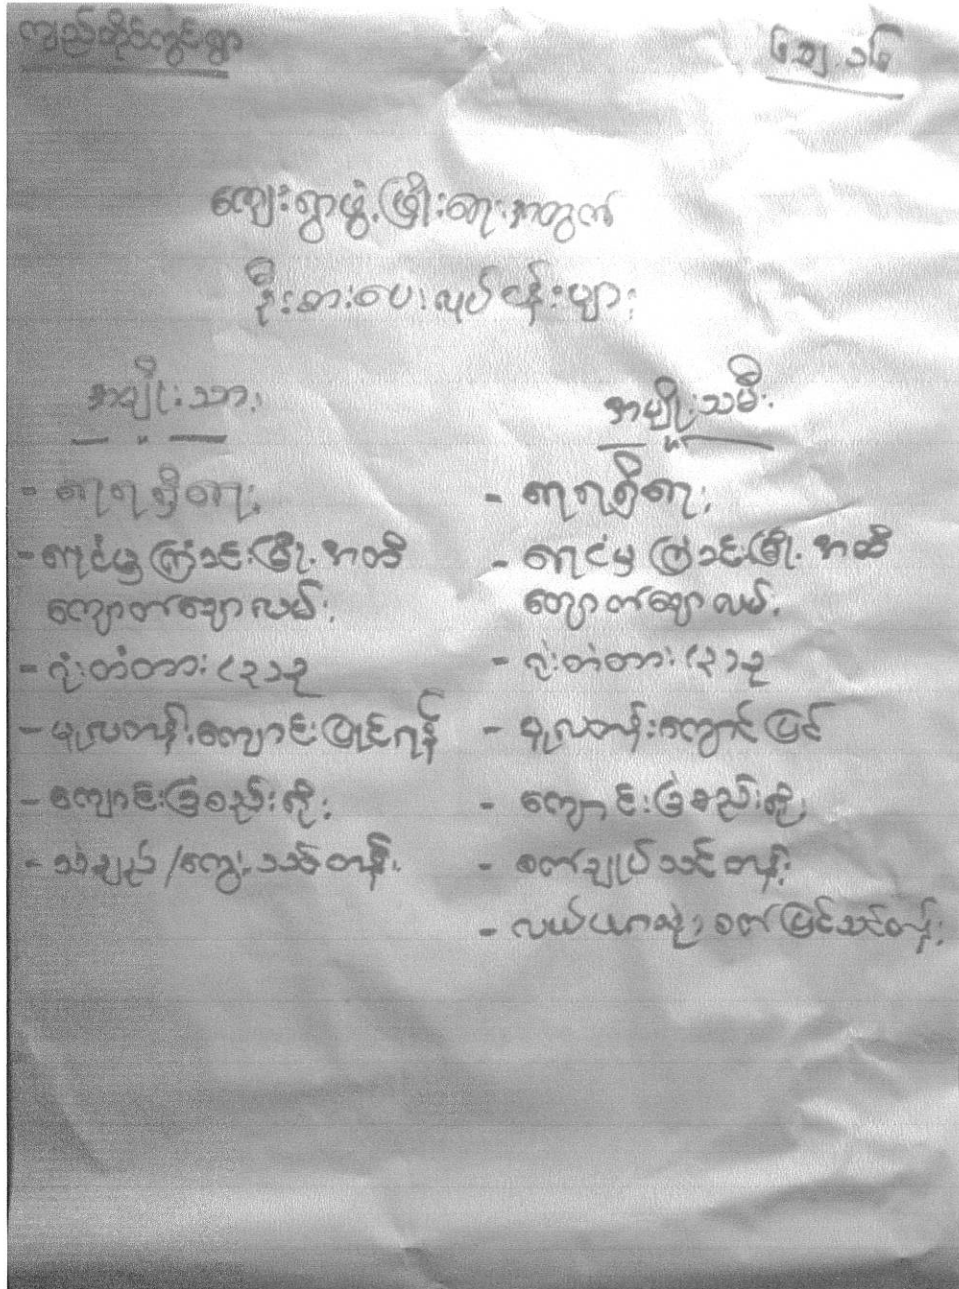 ကျည်တိုင်ကွင်းရွာ
ကျေးရွာဖွံ့ဖြိုးရေးအတွက်
ဦးစားပေးလုပ်ငန်းများ
အမျိုးသား
- ရေရရှိရေး
- ရေငံမှ ကြံခင်းမြို့အထိ
ကျောက်ချောလမ်း
- ရုံးတံတား
- မူလတန်းကျောင်းပြုပြင်ရန်
- ကျောင်းခြံစည်းရိုး
- သင်တန်း
အမျိုးသမီး
- ရေရရှိရေး
- ရေငံမှ ကြံခင်းမြို့အထိ
ကျောက်ချောလမ်း
- ရုံးတံတား
- မူလတန်းကျောင်းပြင်
- ကျောင်းခြံစည်းရိုး
- စက်ချုပ်သင်တန်း
- လယ်ယာသုံးစက်ပြင်သင်တန်း